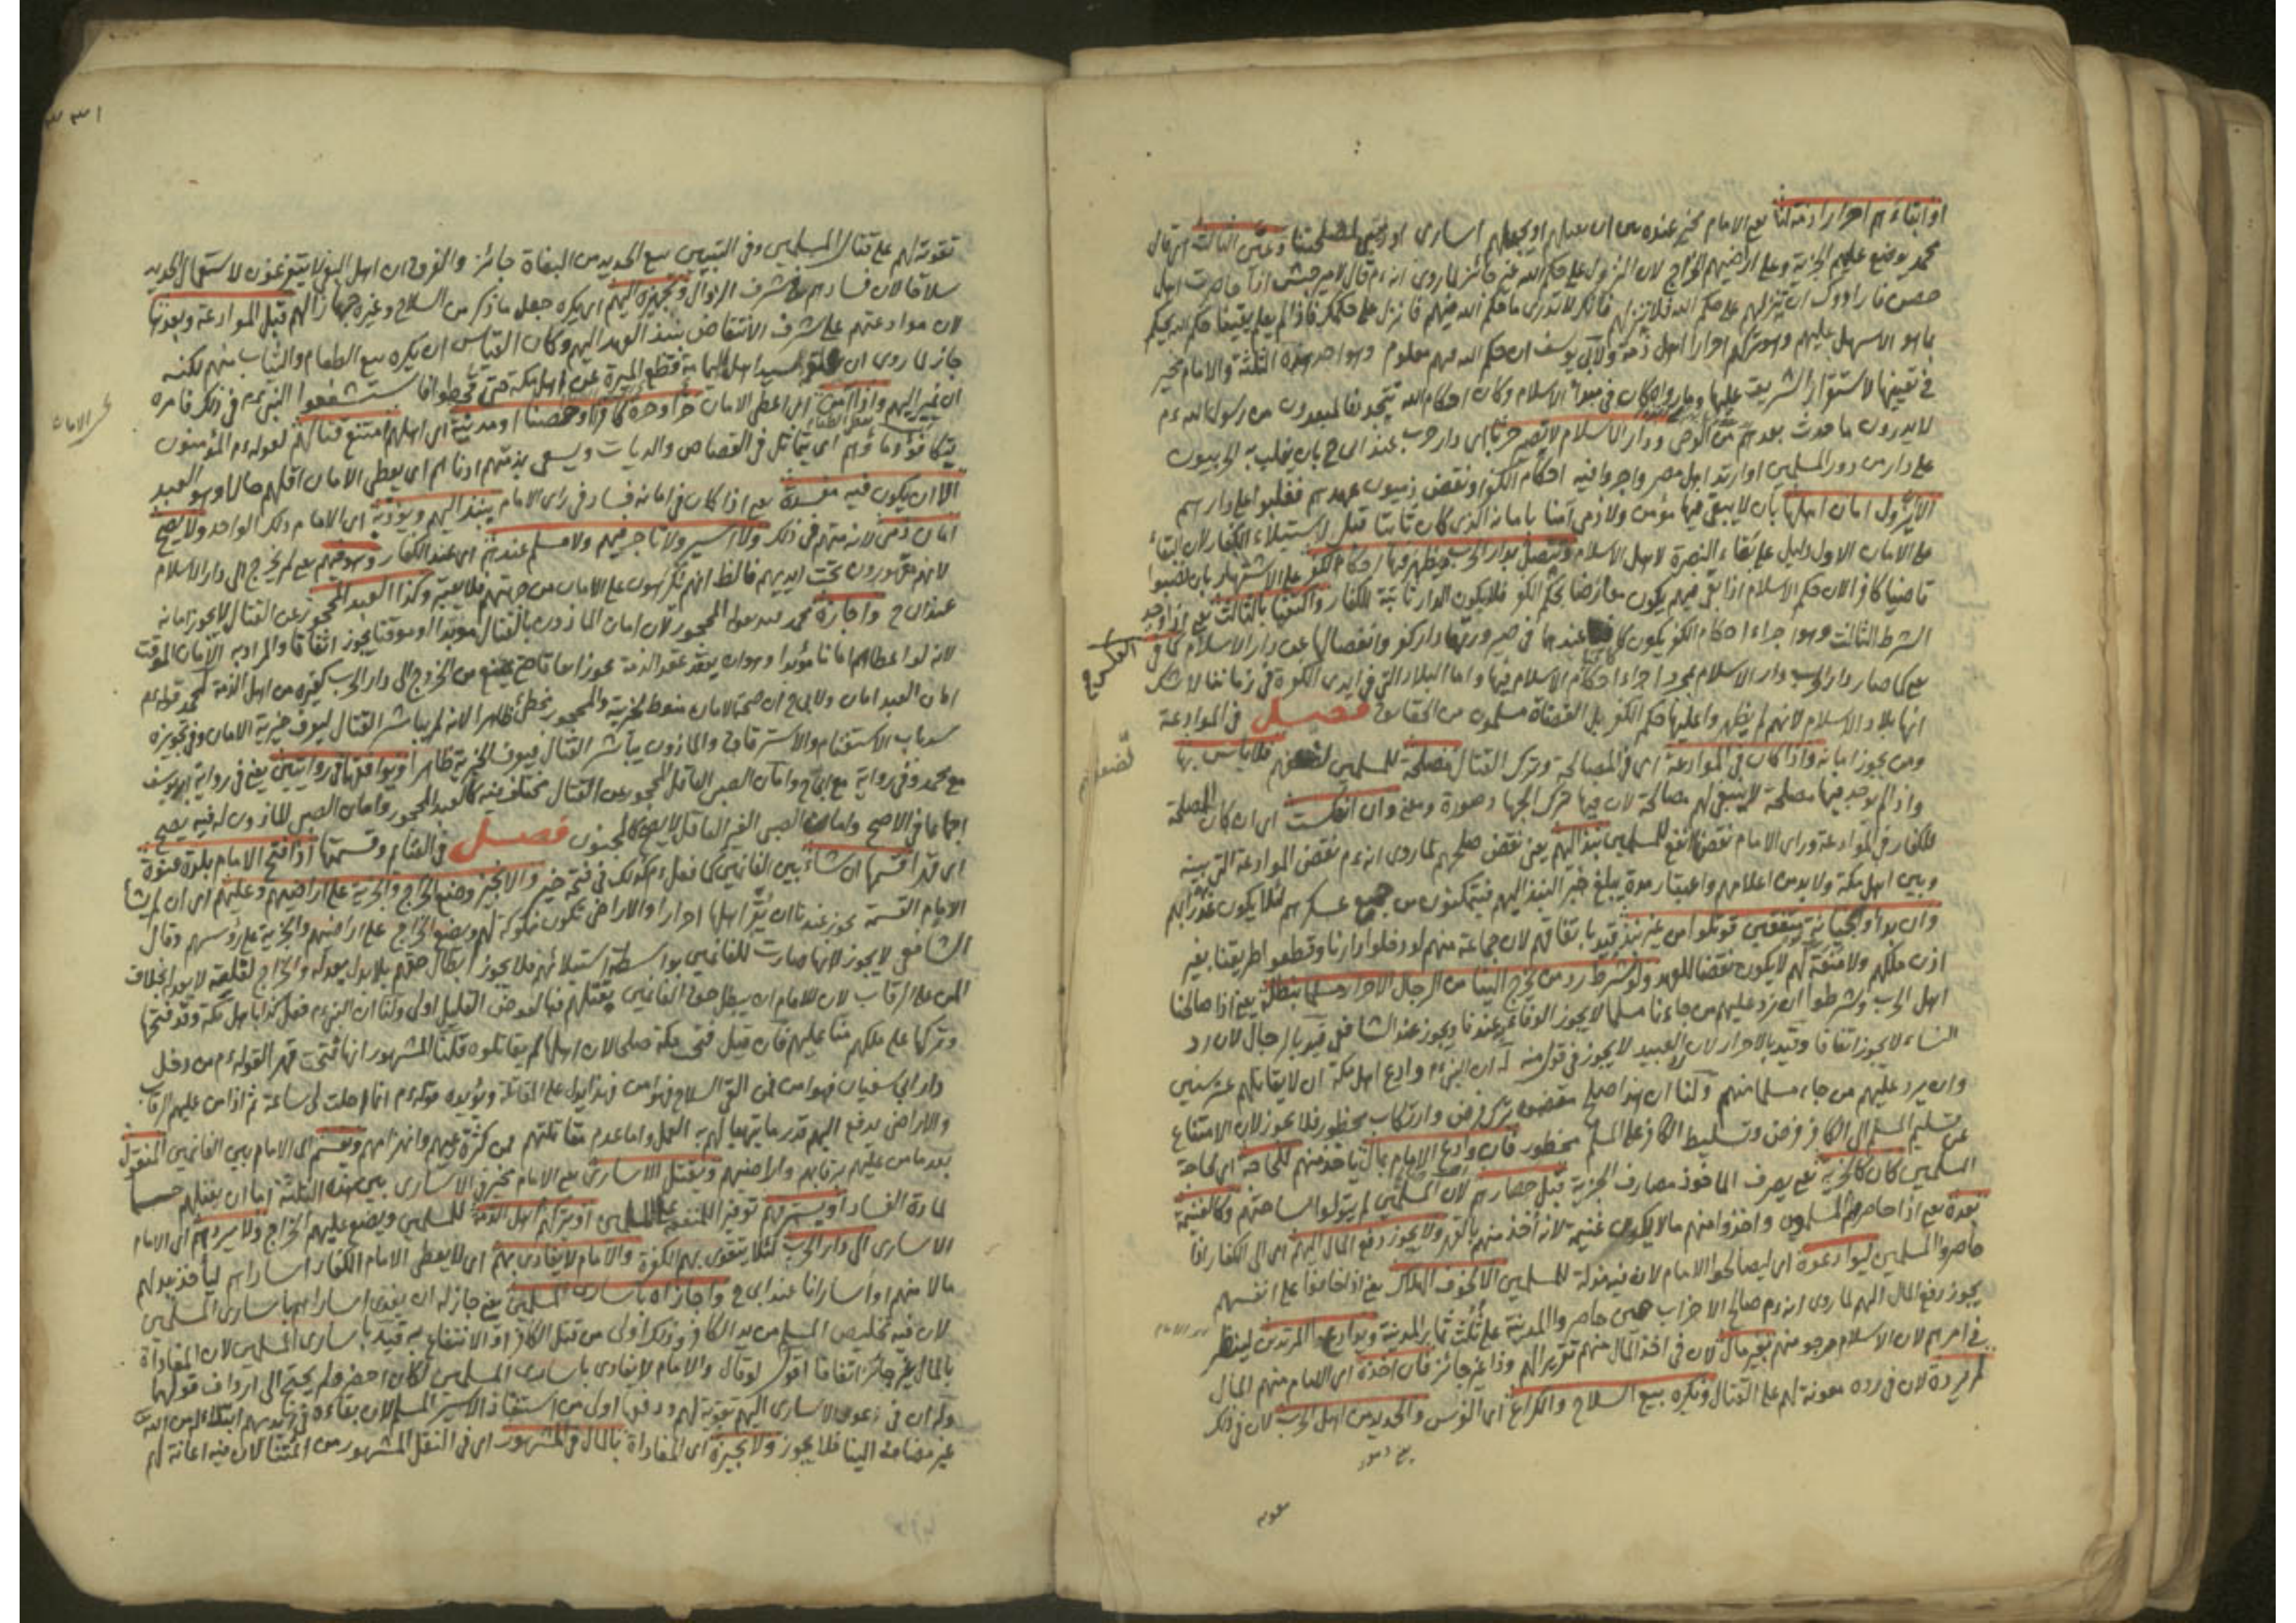 او ابقاءهم احرارا ذمة لنا يعني الامام مخير عنده بين ان يقتلهم او يجعلهم اسارى او ذمتين لمصلحتنا وعين الثالثة اي قال
محمد يوضع عليهم الجزية وعلى اراضيهم الخراج لان النزول على حكم الله غير جائز لما روى انه عم قال لامير جيش اذا حاصرت اهل
حصن فارادوك ان تنزلهم على حكم الله فلا تنزلهم فانك لا تدرى ما حكم الله فيهم فانزل على حكمك فاذا لم يعلم يقينا حكم الله يحكم
بما هو الاسهل عليهم وهو تركهم احرارا اهل ذمة ولابى يوسف ان حكم الله فيهم معلوم وهو احد هذه الثلثة والامام مخير
في تعيينها لاستقرار الشريعة عليها وما رواه كان في مبدأ الاسلام وكان احكام الله تتجدد فالمبعدون من رسول الله عم
لا يدرون ما حدث بعدهم من الوحى ودار الاسلام لا تصير حربا اى دار حرب عند ابى ح بان يغلب الحربيون
على دار من دور المسلمين او ارتد اهل مصر واجروا فيه احكام الكفر او نقض ذميون عهدهم فغلبوا على دارهم
الا بزول امان اهلها بان لا يبقى فيها مؤمن ولا ذمى آمنا بامانه الذى كان ثابتا قبل لاستيلاء الكفار لان البقاء
على الامان الاول دليل على بقاء النصرة لاهل الاسلام وتتصل بدار الحرب ويظهر فيها احكام الكفر على الاشتهار بان نصبوا
قاضيا كافرا لان حكم الاسلام اذا بقى فيهم يكون معارضا بحكم الكفر فلا يكون الدار ثابتة للكفار واكتفيا بالثالث يعني اذا وجد
الشرط الثالث وهو اجراء احكام الكفر يكون كافيا عندهما في صيرورتها دار كفر وانفصالها عن دار الاسلام كما في العكس
يعني كما صار دار الحرب دار الاسلام بمجرد اجراء احكام الاسلام فيها واما البلاد التي في ايدى الكفرة في زماننا لا شك
انها بلاد الاسلام لانهم لم يظهروا عليها حكم الكفر بل القضاة مسلمون من الحقايق فصل في الموادعة
ومن يجوز امانه واذا كان في الموادعة اى في المصالحة وترك القتال مصلحة للمسلمين لضعفهم فلا بأس بها
واذا لم يوجد فيها مصلحة لا ينبغى لهم مصالحة لان فيها ترك الجهاد صورة ومعنى وان انعكست اى ان كان المصلحة
للكفار في الموادعة وراى الامام نقضها انفع للمسلمين نبذ اليهم يعني نقض صلحهم لما روى انه عم نقض الموادعة التي بينه
وبين اهل مكة ولا بد من اعلامهم واعتبار مدة يبلغ خبر النبذ اليهم فيتمكنون من جمع عسكرهم لئلا يكون غدرا بهم
وان بدأوا بخيانة متفقين قوتلوا من غير نبذ قيد باتفاقهم لان جماعة منهم لو دخلوا دارنا وقطعوا طريقنا بغير
اذن ملكهم ولا منعة لهم لا يكون نقضا للعهد ولو شرط رد من خرج الينا من الرجال الاحرار مسلما نبطله يعني اذا صالحنا
اهل الحرب وشرطوا ان نرد عليهم من جاءنا مسلما لا يجوز الوفاء به عندنا ويجوز عند الشافعى قيد بالرجال لان رد
النساء لا يجوز اتفاقا وقيد بالاحرار لان رد العبيد لا يجوز في قول منه له ان النبى عم وادع اهل مكة ان لا يقاتلهم عشر سنين
وان يرد عليهم من جاء مسلما منهم ولنا ان هذا صلح مقتض ترك فرض وارتكاب محظور فلا يجوز لان الامتناع
عن تسليم المسلم الى الكافر فرض وتسليط الكافر على المسلم محظور فان وادع الامام بمال ياخذ منهم للحاجة اى لحاجة
المسلمين كان كالجزية يعني يصرف الماخوذ مصارف الجزية قبل حصارهم لان المسلمين لم يتولوا لساحتهم وكالغنيمة
بعده يعني اذا حاصرهم المسلمون واخذوا منهم مالا يكون غنيمة لانه أخذ منهم بالقهر ولا يجوز دفع المال اليهم اى الى الكفار اذا
حاصروا المسلمين ليوادعوه اى ليصالحوا الامام لان فيه مذلة للمسلمين الا لخوف الهلاك يعني اذا خافوا على انفسهم
يجوز دفع المال اليهم لما روى انه عم صالح الاحزاب حين حاصروا المدينة على ثلث ثمار المدينة ويوادع المرتدين لينظر
في امرهم لان الاسلام مرجو منهم بغير مال لان في اخذ المال منهم تقريرا لهم وذا غير جائز فان اخذه اى الامام منهم المال
لم يرده لان في رده معونة لهم على القتال ويكره بيع السلاح والكراع اى الفرس والحديد من اهل الحرب لان في ذلك
تقوية لهم على قتال المسلمين وفي التبيين بيع الحديد من البغاة جائز والفرق ان اهل البغى لا يتفرغون لاستعمال الحديد
سلاحا لان فسادهم على شرف الزوال وتجهيزه اليهم اى يكره جعل ما ذكر من السلاح وغيره جهازا لهم قبل الموادعة وبعدها
لان موادعتهم على شرف الانتقاض بنبذ العهد اليهم وكان القياس ان يكره بيع الطعام والثياب منهم لكنه
جاز لما روى ان سيد اهل اليمامة قطع الميرة عن اهل مكة حتى قحطوا فاستشفعوا النبى عم في ذلك فامره
ان يمير اليهم واذا آمن اى اعطى الامان حر او حرة كافرا او حصنا او مدينة اى اهلهم امتنع قتالهم لقوله عم المؤمنون
تتكافؤ دماؤهم اى يتماثل في القصاص والديات ويسعى بذمتهم ادناهم اى يعطى الامان اقلهم حالا وهو العبد
الا ان يكون فيه مفسدة يعني اذا كان في امانه فساد في راى الامام ينبذ اليهم ويؤدبه اى الامام ذلك الواحد ولا يصح
امان ذمى لانه متهم في ذلك ولا اسير ولا تاجر فيهم ولا مسلم عندهم اى عند الكفار وهو فيهم يعني لم يخرج الى دار الاسلام
لانهم مقهورون تحت ايديهم فالظ انهم مكرهون على الامان من جهتهم فلا يعتبر وكذا العبد المحجور عن القتال لا يجوز امانه
عند ابى ح واجازه محمد قيد بالمحجور لان امان الماذون بالقتال مؤبدا او موقتا يجوز اتفاقا والمراد به الامان الموقت
لانه لو اعطاهم امانا مؤبدا وهو ان يعقد عقد الذمة يجوز اتفاقا حتى يمنع من الخروج الى دار الحرب كغيره من اهل الذمة لمحمد قوله عم
امان العبد امان ولابى ح ان صحة الامان منوط بخيرية والمحجور يخطئ ظاهرا لانه لم يباشر القتال ليعرف خيرية الامان وفي تجويزه
سد باب الاستغنام والاسترقاق والماذون يباشر القتال فيعرف الخيرية ظاهرا ويوافقها في روايتين يعني في رواية ابو يوسف
مع محمد وفي رواية مع ابى ح وامان الصبى العاقل المحجور عن القتال مختلف فيه كالعبد المحجور وامان الصبى الماذون له فيه يصح
اجماعا في الاصح وامان الصبى الغير العاقل لا يصح كالمجنون فصل في الغنائم وقسمتها اذا فتح الامام بلدة عنوة
اى قهرا قسمها ان شاء بين الغانمين كما فعل عم كذلك في فتح خيبر والا يخير وضع الخراج والجزية على اراضيهم وعليهم اى ان لم يشأ
الامام القسمة يجوز عندنا ان يقر اهلها احرارا والاراضى تكون مملوكة لهم ويضع الخراج على اراضيهم والجزية على رؤسهم وقال
الشافعى لا يجوز لانها صارت للغانمين بواسطة استيلائهم فلا يجوز ابطال حقهم بلا بدل يعدله والخراج لقلته لا يعدله بخلاف
المن على الرقاب لان للامام ان يبطل حق الغانمين بقتلهم فبالعوض القليل اولى ولنا ان النبى عم فعل كذا باهل مكة وقد فتحها
وتركها على ملكهم منا عليهم فان قيل فتح مكة صلحا لان اهلها لم يقاتلوه قلنا المشهور انها فتحت قهرا لقوله عم من دخل
دار ابى سفيان فهو آمن فمن القى السلاح فهو امن فهذا يدل على المقاتلة ويؤيده قوله عم انما احلت لى ساعة ثم اذا من عليهم الرقاب
والاراضى يدفع اليهم قدر ما يتهيأ لهم به العمل واما عدم مقاتلتهم فمن كثرة رعبهم وانهزامهم ويقسم اى الامام بين الغانمين المنقول
بعد ما من عليهم برقابهم واراضيهم ويقتل الاسارى يعني الامام مخير في الاسارى بين هذه الثلثة اما ان يقتلهم حسما
لمادة الفساد او يسترقهم توفيرا للمنفعة على المسلمين او يتركهم اهل الذمة للمسلمين ويضع عليهم الخراج ولا يردهم اى الامام
الاسارى الى دار الحرب لئلا يتقوى بهم الكفرة والامام لا يفادى بهم اى لا يعطى الامام الكفار اساراهم ليأخذ بدلهم
مالا منهم او اسارانا عند ابى ح واجازاه باسارى المسلمين يعني جاز له ان يفدى اساراهم باسارى المسلمين
لان فيه تخليص المسلم من يد الكافر وذلك اولى من قتل الكافر او الانتفاع به قيد باسارى المسلمين لان المفاداة
بالمال غير جائز اتفاقا اقول لو قال والامام لا يفادى باسارى المسلمين لكان احصر فلم يحتج الى ارداف قولهما
وله ان في دعوى الاسارى اليهم تقوية لهم ودفعها اولى من استنقاذ الاسير المسلم لان بقاءه في ايديهم ابتلاء من الله
غير مضافة الينا فلا يجوز ولا نجيزه اى المفاداة بالمال في المشهور اى في النقل المشهور من ائمتنا لان فيه اعانة لهم